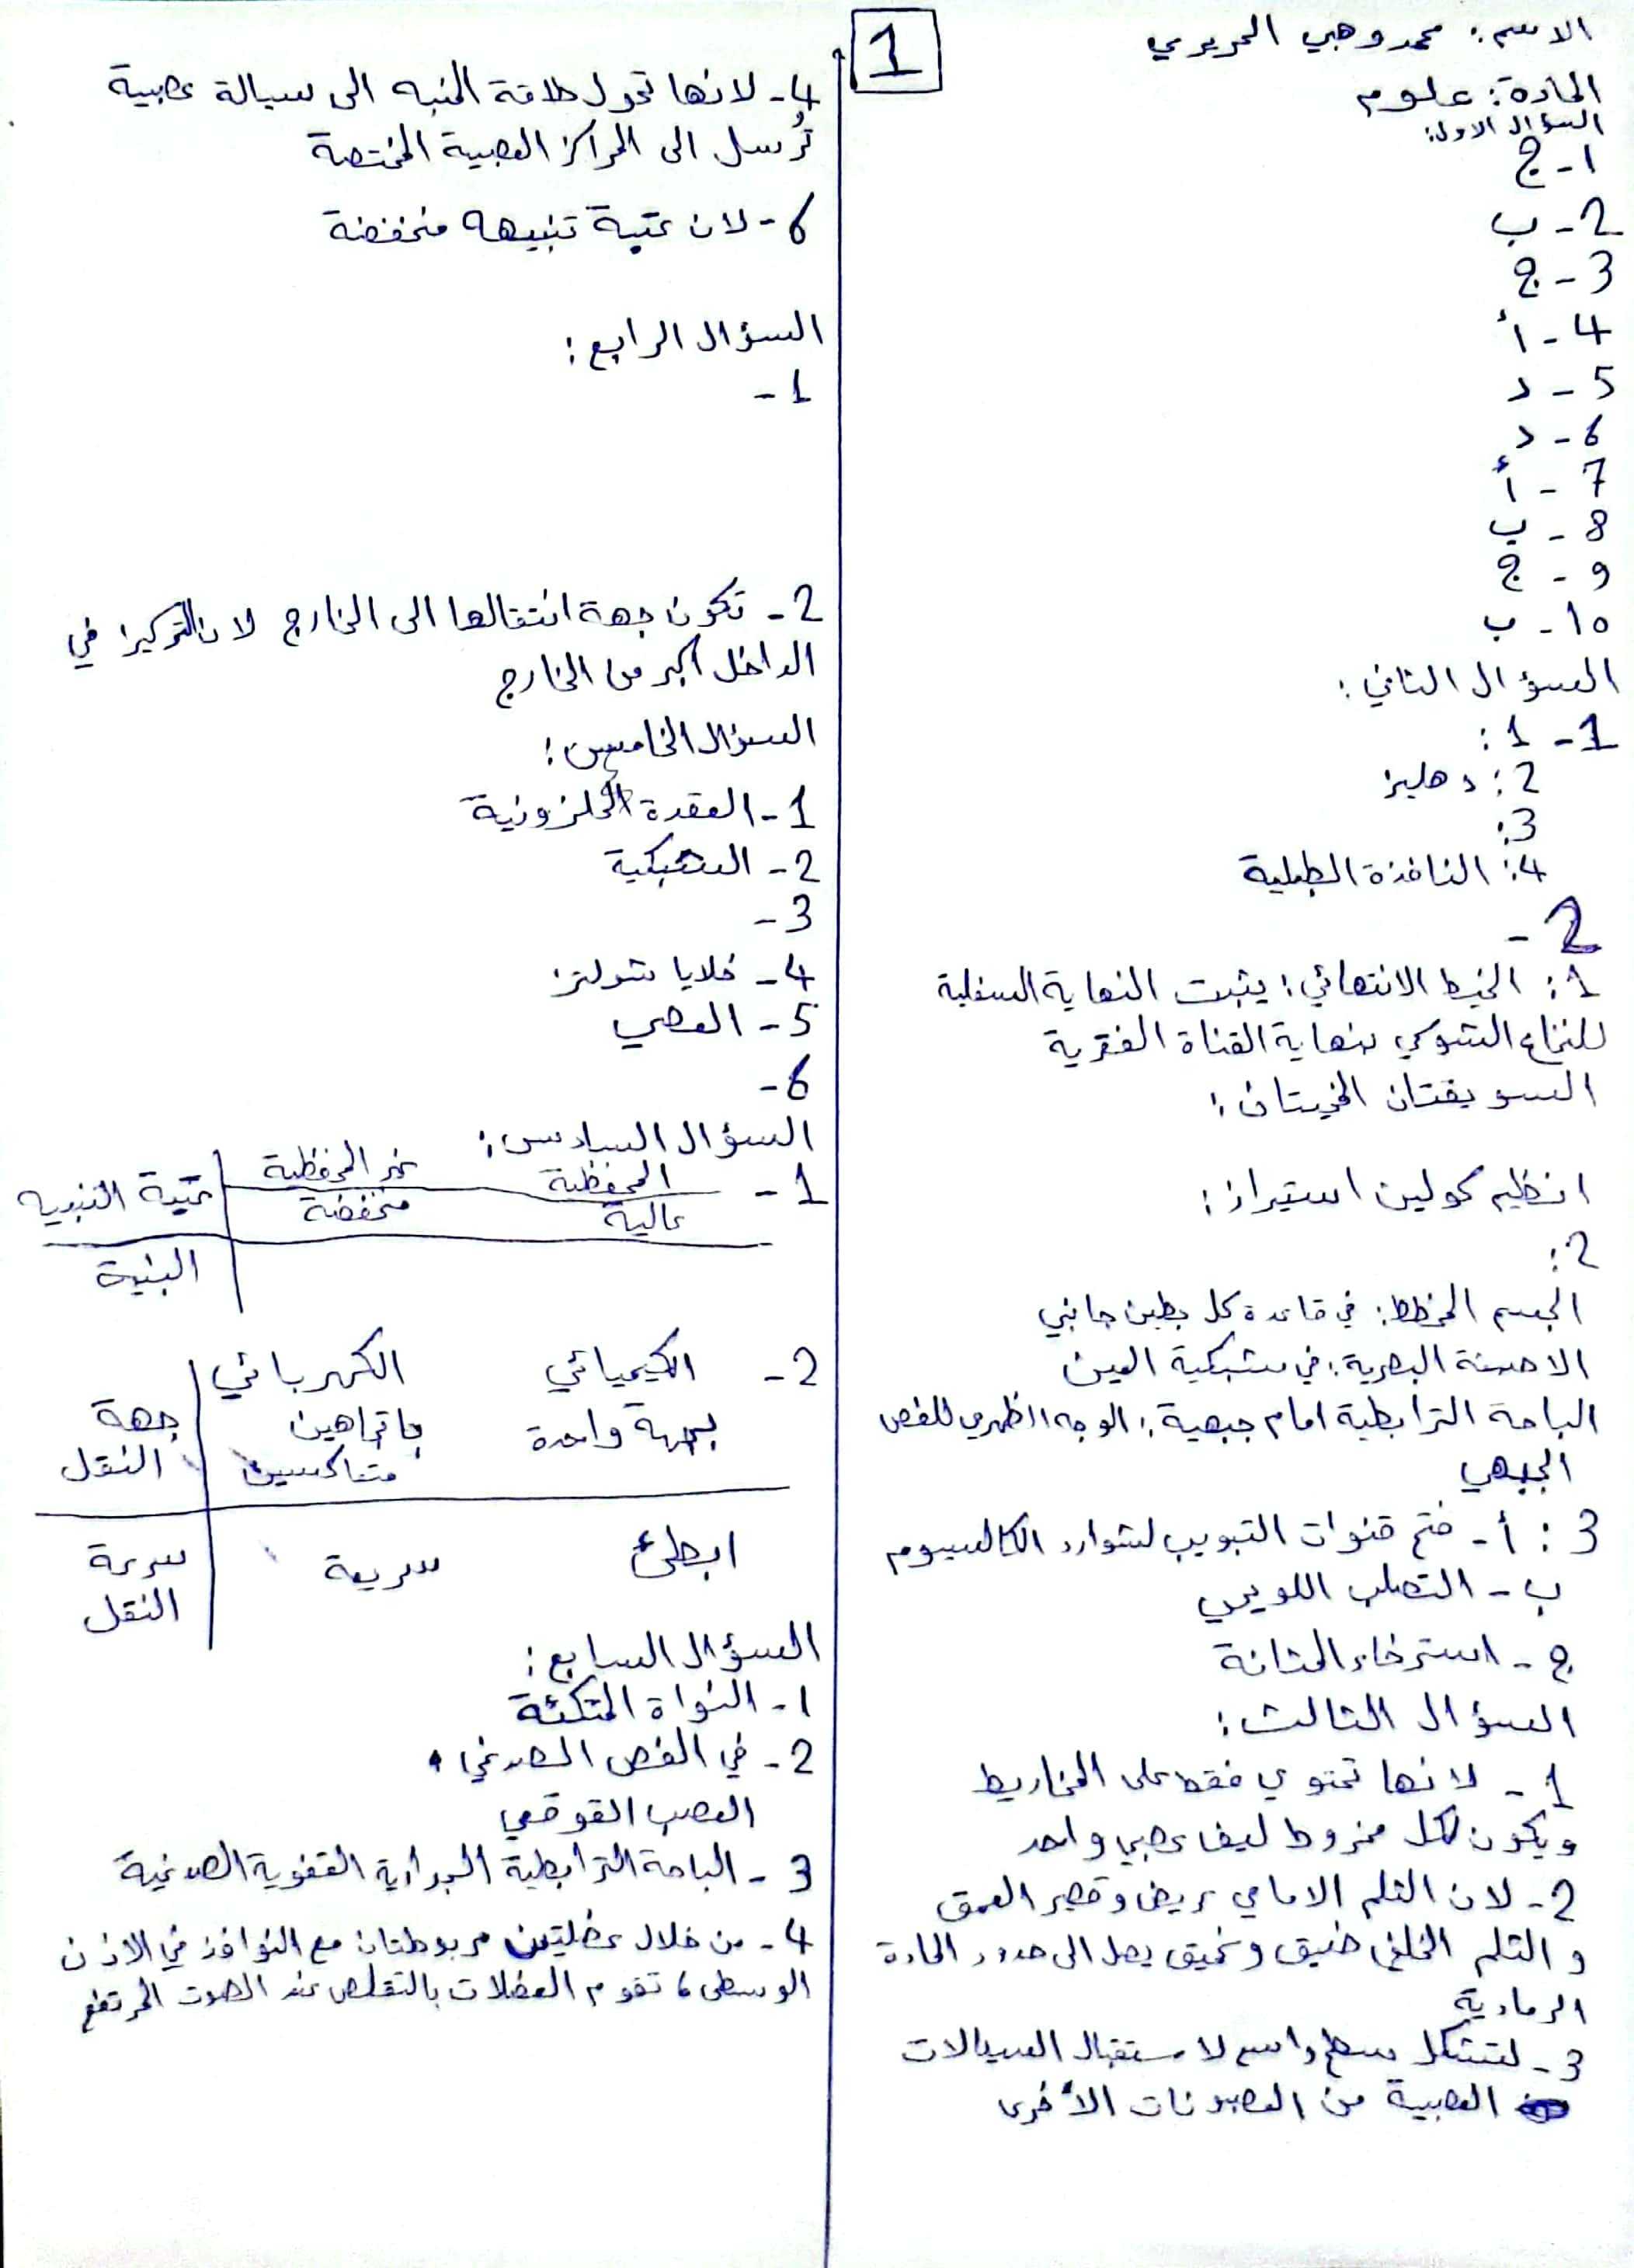 1
الاسم: محمد وهبي الحريري
المادة: علوم
السؤال الاول:
1- ج
2- ب
3- ج
4- أ
5- د
6- د
7- أ
8- ب
9- ج
10- ب
السؤال الثاني:
1- 1:
2: دهليز
3:
4: النافذة الطبلية
2-
1: الخيط الانتهائي: يثبت النهاية السفلية
للنخاع الشوكي بنهاية القناة الفقرية
السويقتان المخيتان:
انظيم كولين استيراز:
2:
الجسم المخطط: في قاعدة كل بطين جانبي
الاصبغة البصرية: في شبكية العين
الباحة الترابطية امام جبهية: الوجه الظهري للفص
الجبهي
3: أ- فتح قنوات التبويب لشوارد الكالسيوم
ب- التصلب اللويحي
ج- استرخاء المثانة
السؤال الثالث:
1- لانها تحتوي فقط على المخاريط
ويكون لكل مخروط ليف عصبي واحد
2- لان الثلم الامامي عريض وقصير العمق
و الثلم الخلفي ضيق وعميق يصل الى حدود المادة
الرمادية
3- لتشكل سطح واسع لاستقبال السيالات
العصبية من العصبونات الأخرى
4- لانها تحول طاقة المنبه الى سيالة عصبية
تُرسل الى المراكز العصبية المختصة
6- لان عتبة تنبيهه منخفضة
السؤال الرابع:
1-
2- تكون جهة انتقالها الى الخارج لان التركيز في
الداخل أكبر من الخارج
السؤال الخامس:
1- العقدة الحلزونية
2- الشبكية
3-
4- خلايا شولتز
5- العصي
6-
السؤال السادس:
1- المحفظية غير المحفظية
عالية منخفضة عتبة التنبيه
البنية
2- الكيميائي الكهربائي
بجهة واحدة باتجاهين جهة
متعاكسين النقل
ابطئ سريعة سرعة
النقل
السؤال السابع:
1- النواة المتكئة
2- في الفص الصدغي،
العصب القوقعي
3- الباحة الترابطية الجدارية القفوية الصدغية
4- من خلال عضليتين مربوطتان مع النوافذ في الاذن
الوسطى، تقوم العضلات بالتقلص عند الصوت المرتفع